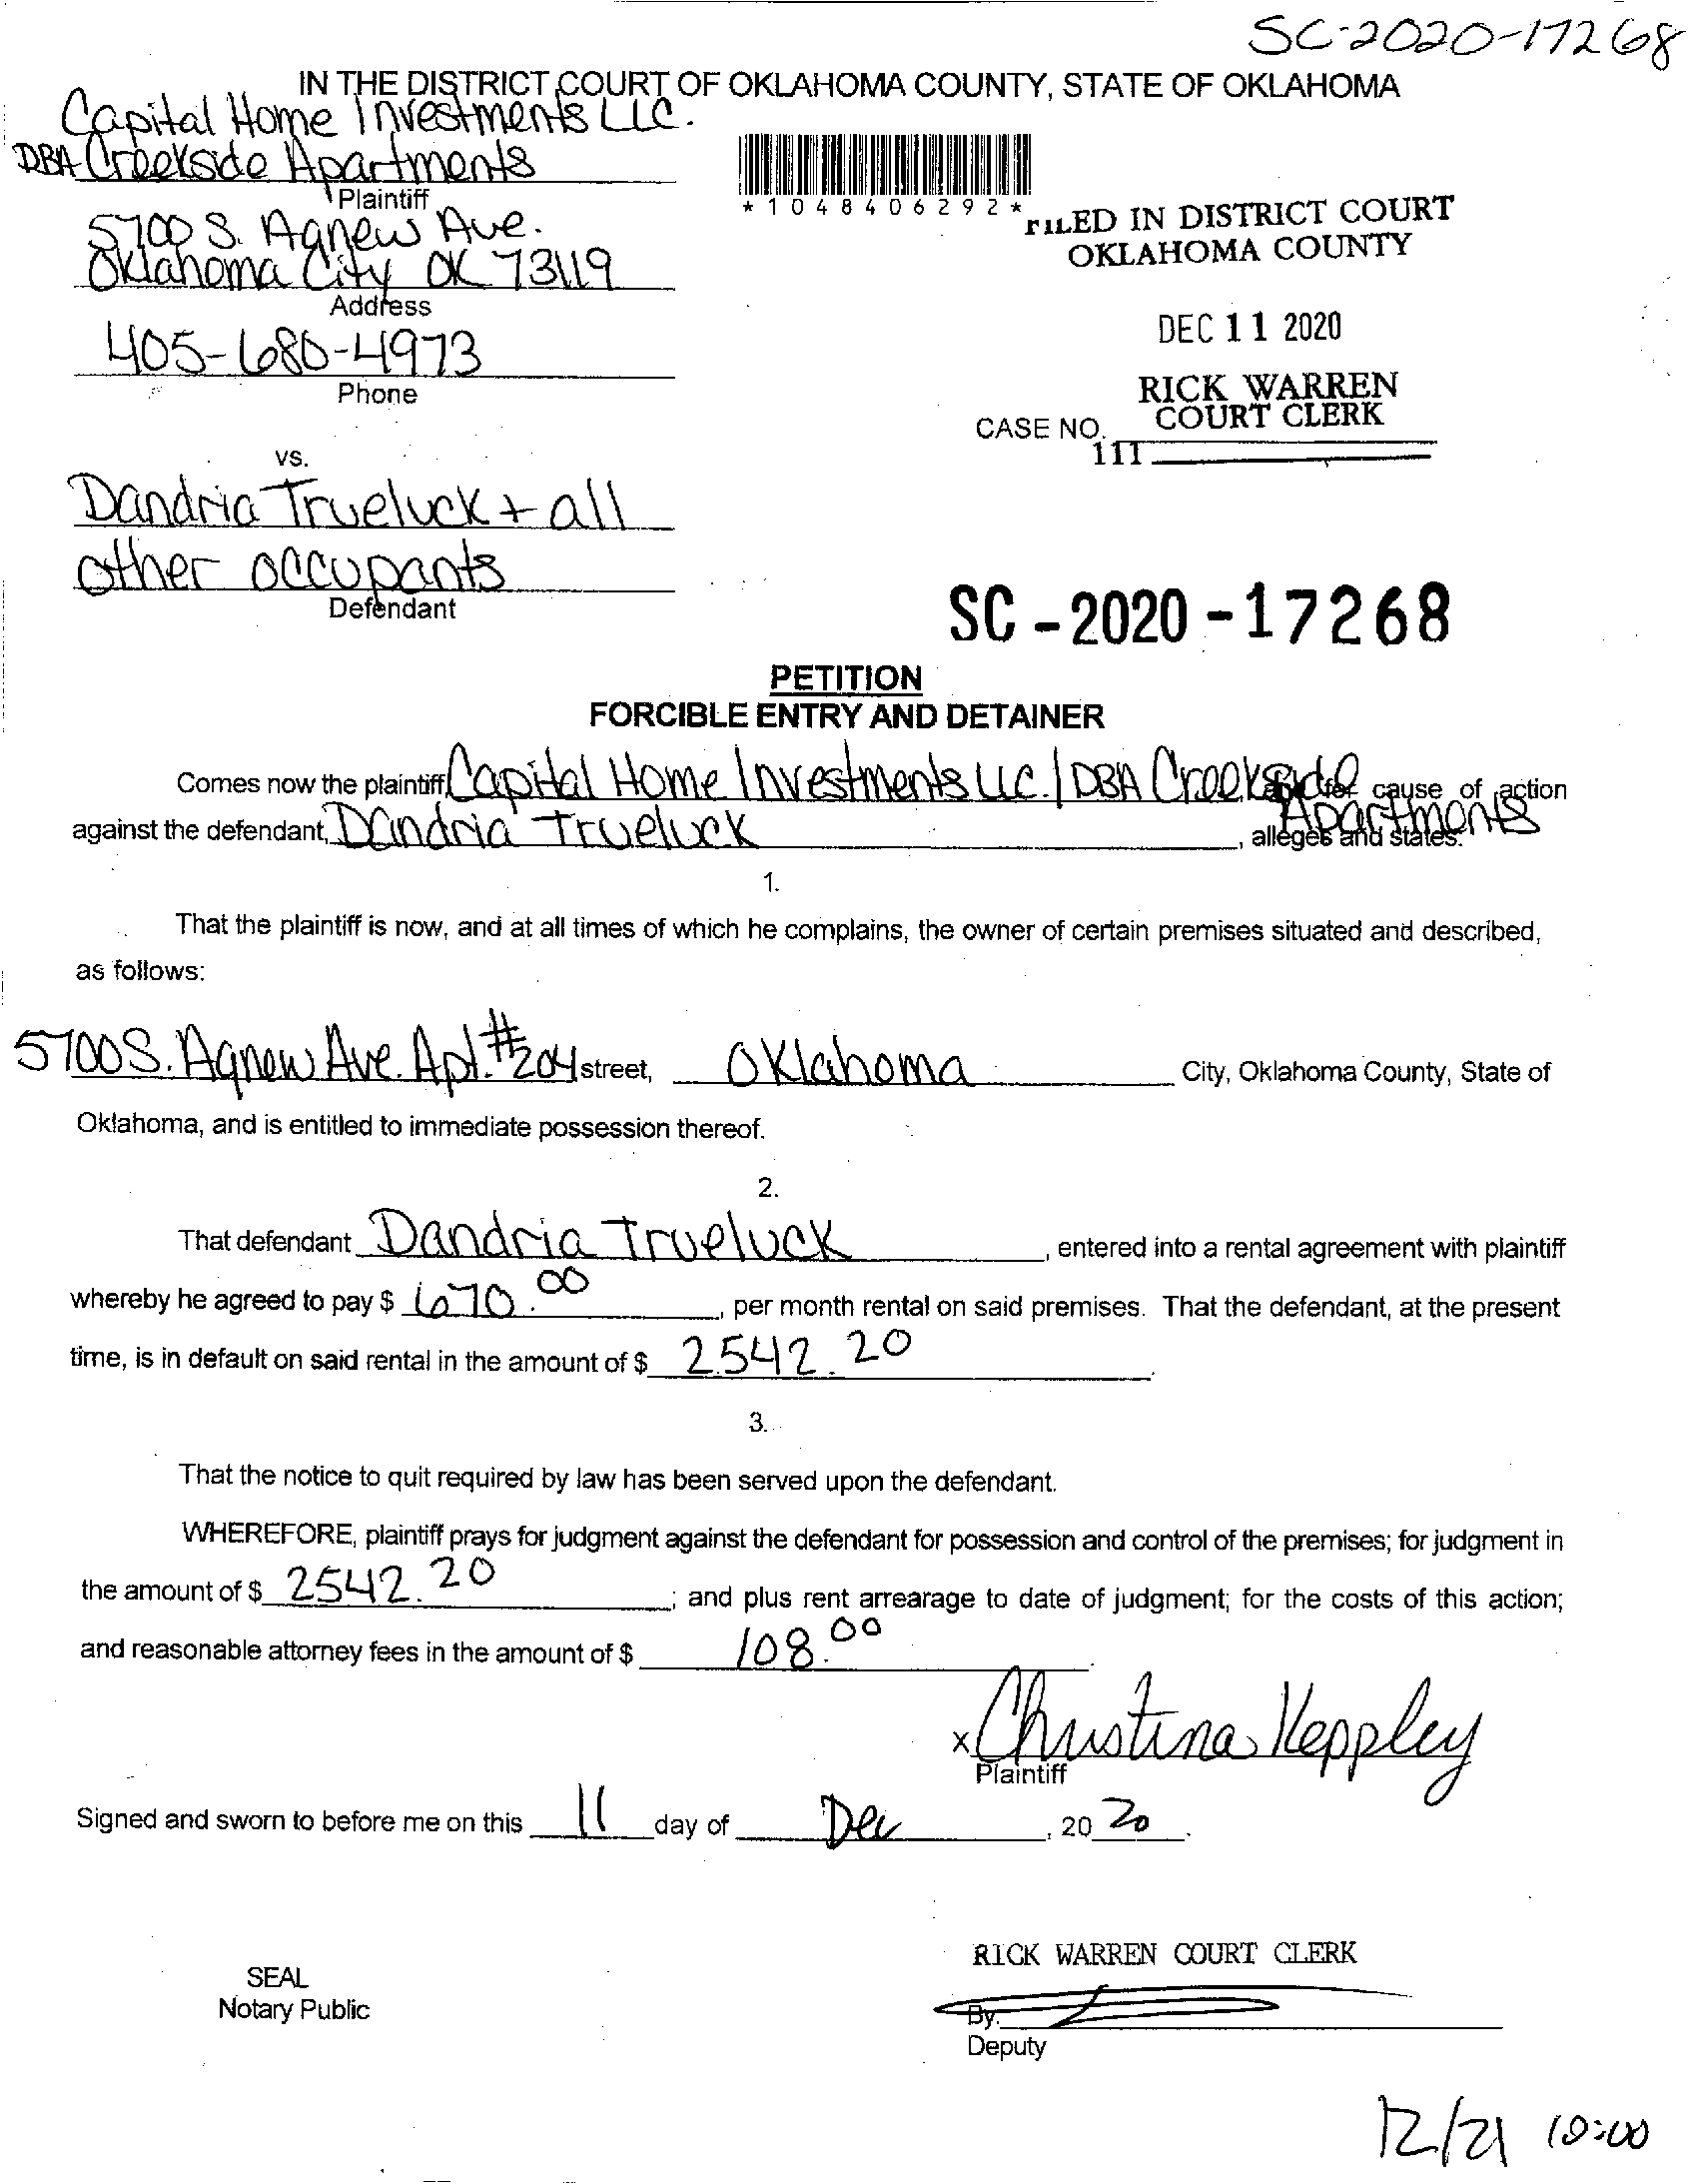 SC-2020-17268
IN THE DISTRICT COURT OF OKLAHOMA COUNTY, STATE OF OKLAHOMA
Capital Home Investments LLC.
DBA Creekside Apartments
Plaintiff
5700 S. Agnew Ave.
Oklahoma City OK 73119
Address
405-680-4973
Phone
*1048406292*
FILED IN DISTRICT COURT
OKLAHOMA COUNTY
DEC 11 2020
RICK WARREN
COURT CLERK
CASE NO.
111
vs.
Dandria Trueluck + all
other occupants
Defendant
SC-2020-17268
PETITION
FORCIBLE ENTRY AND DETAINER
Comes now the plaintiff, Capital Home Investments LLC. / DBA Creekside Apartments and for cause of action
against the defendant, Dandria Trueluck, alleges and states:
1.
That the plaintiff is now, and at all times of which he complains, the owner of certain premises situated and described,
as follows:
5700 S. Agnew Ave. Apt. #204 street, Oklahoma City, Oklahoma County, State of
Oklahoma, and is entitled to immediate possession thereof.
2.
That defendant Dandria Trueluck, entered into a rental agreement with plaintiff
whereby he agreed to pay $ 670.00, per month rental on said premises. That the defendant, at the present
time, is in default on said rental in the amount of $ 2542.20.
3.
That the notice to quit required by law has been served upon the defendant.
WHEREFORE, plaintiff prays for judgment against the defendant for possession and control of the premises; for judgment in
the amount of $ 2542.20; and plus rent arrearage to date of judgment; for the costs of this action;
and reasonable attorney fees in the amount of $ 108.00.
x Christina Keppley
Plaintiff
Signed and sworn to before me on this 11 day of Dec, 20 20.
RICK WARREN COURT CLERK
SEAL
Notary Public
By:
Deputy
12/21 10:00